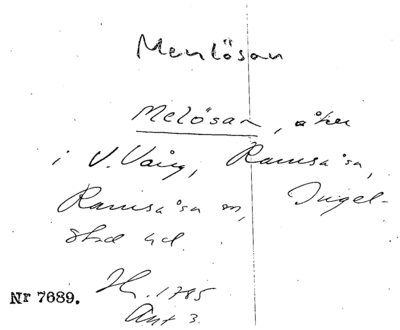 Menlösan
Melösan, åker
i V. Vång, Ramsåsa,
Ramsåsa sn, Ingel-
stad hd.
Nr 7689.
1785
Akt 3.